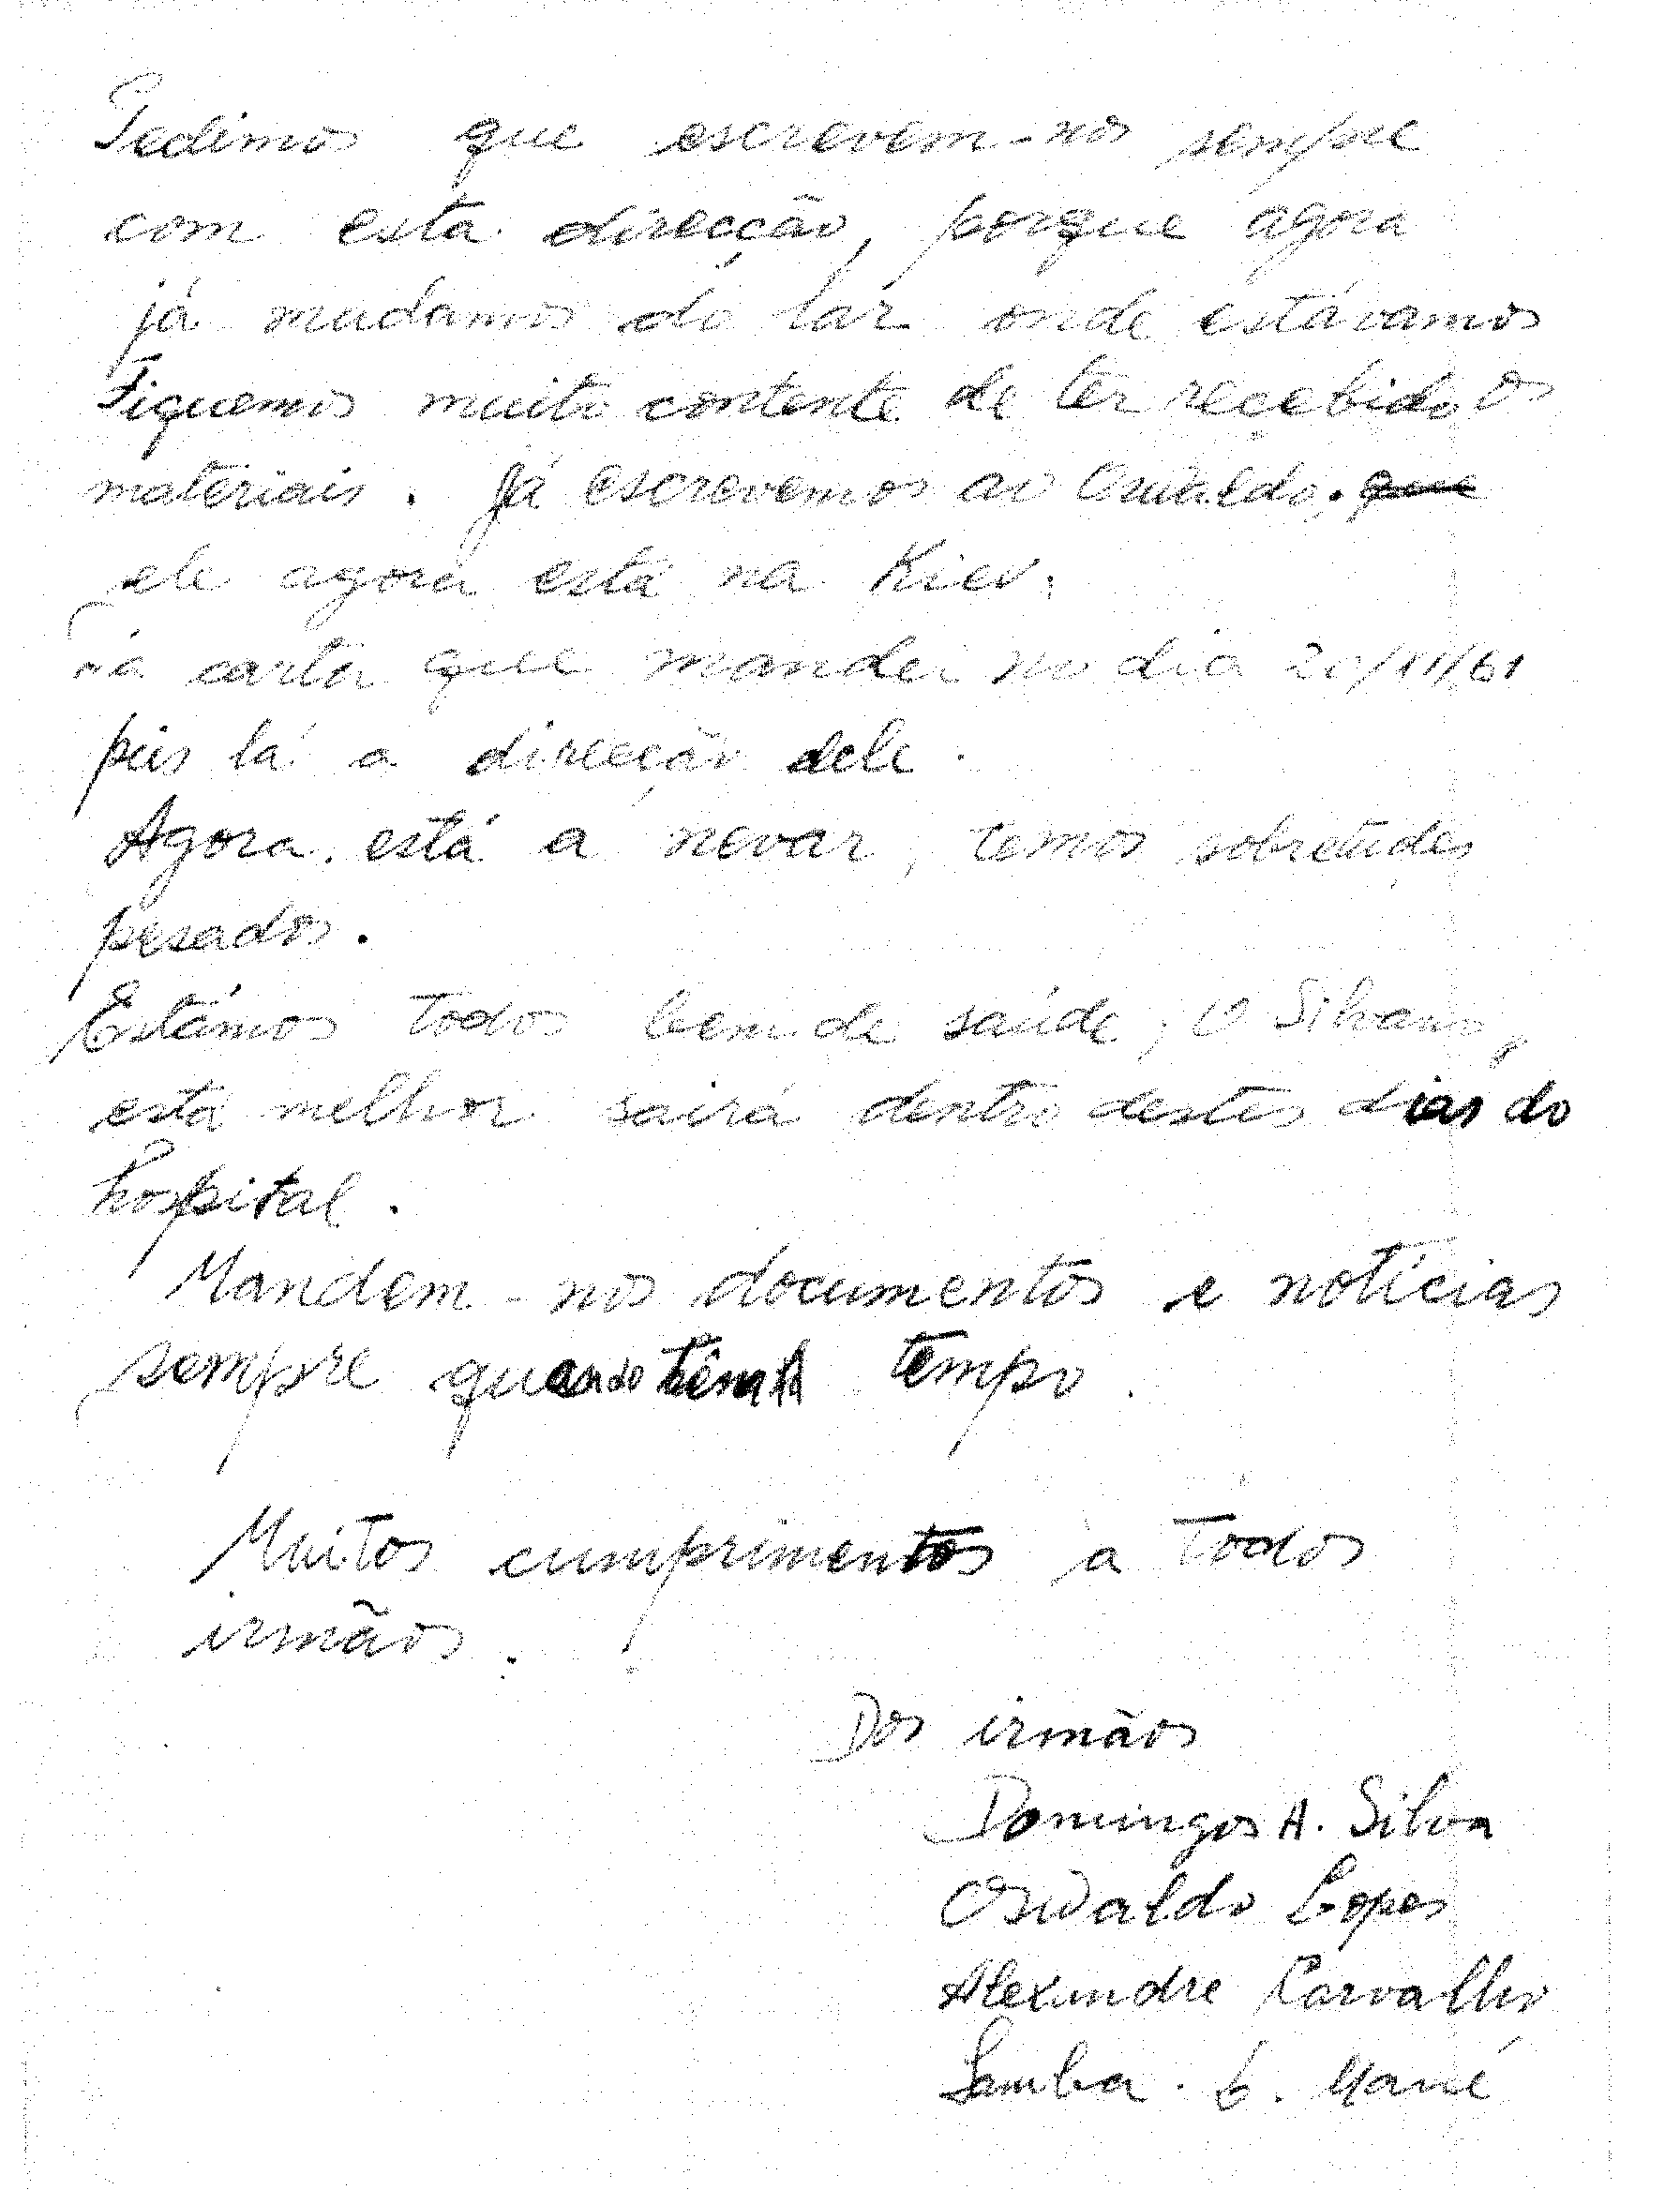 Pedimos que escrevem-nos sempre
com esta direcção, porque agora
já mudamos do lar onde estávamos
Fiquemos muito contente de ter recebido os
materiais. Já escrevemos ao Oswaldo. que
ele agora está na Kiev.
na carta que mandei no dia 20/11/61
pús lá a direcção dele.
Agora está a nevar, temos sobretudes
pesados.
Estámos todos bem de saúde, O Silvano,
está melhor sairá dentro destes dias do
hospital.
Mandem-nos documentos e notícias
sempre quando têm tempo.
Muitos cumprimentos a todos
irmãos.
Dos irmãos
Domingos A. Silva
Oswaldo Lopes
Alexandre Carvalho
Samba. L. Mané